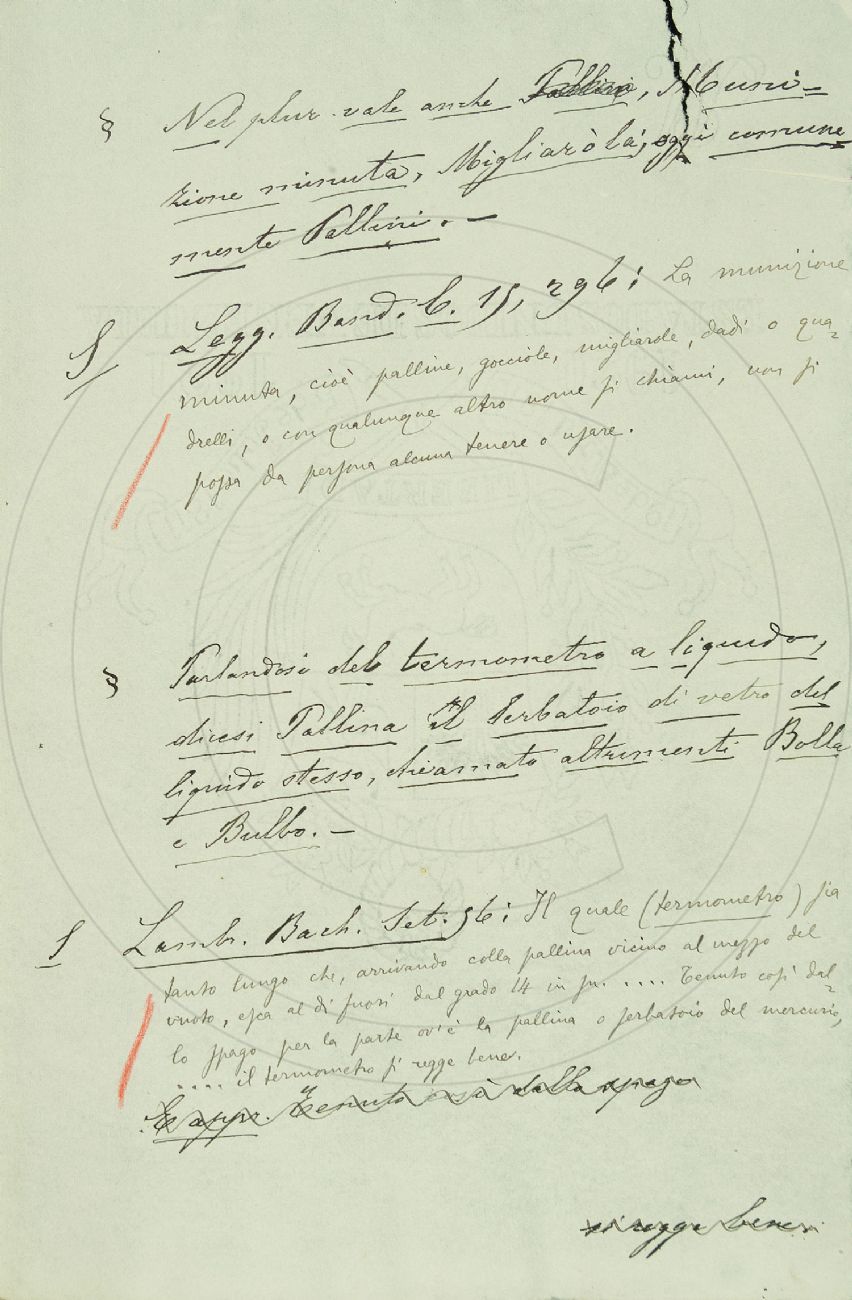 § Nel plur. vale anche Pallini, Muni-
zione minuta, Migliaròla; oggi comune
mente Pallini. –
§ Legg. Band. C. 15, 296: La munizione
minuta, cioè palline, gocciole, migliarole, dadi o qua-
drelli, o con qualunque altro nome si chiami, non si
possa da persona alcuna tenere o usare.
§ Parlandosi del termometro a liquido,
dicesi Pallina il Serbatoio di vetro del
liquido stesso, chiamato altrimenti Bolla
e Bulbo. –
§ Lambr. Bach. Set. 56: Il quale (termometro) sia
tanto lungo che, arrivando colla pallina vicino al mezzo del
vuoto, esca al di fuori dal grado 14 in su. .... Tenuto così dal-
lo spago per la parte ov'è la pallina o serbatoio del mercurio,
.... il termometro si regge bene.
E appr. Tenuto così dallo spago
si regge bene.